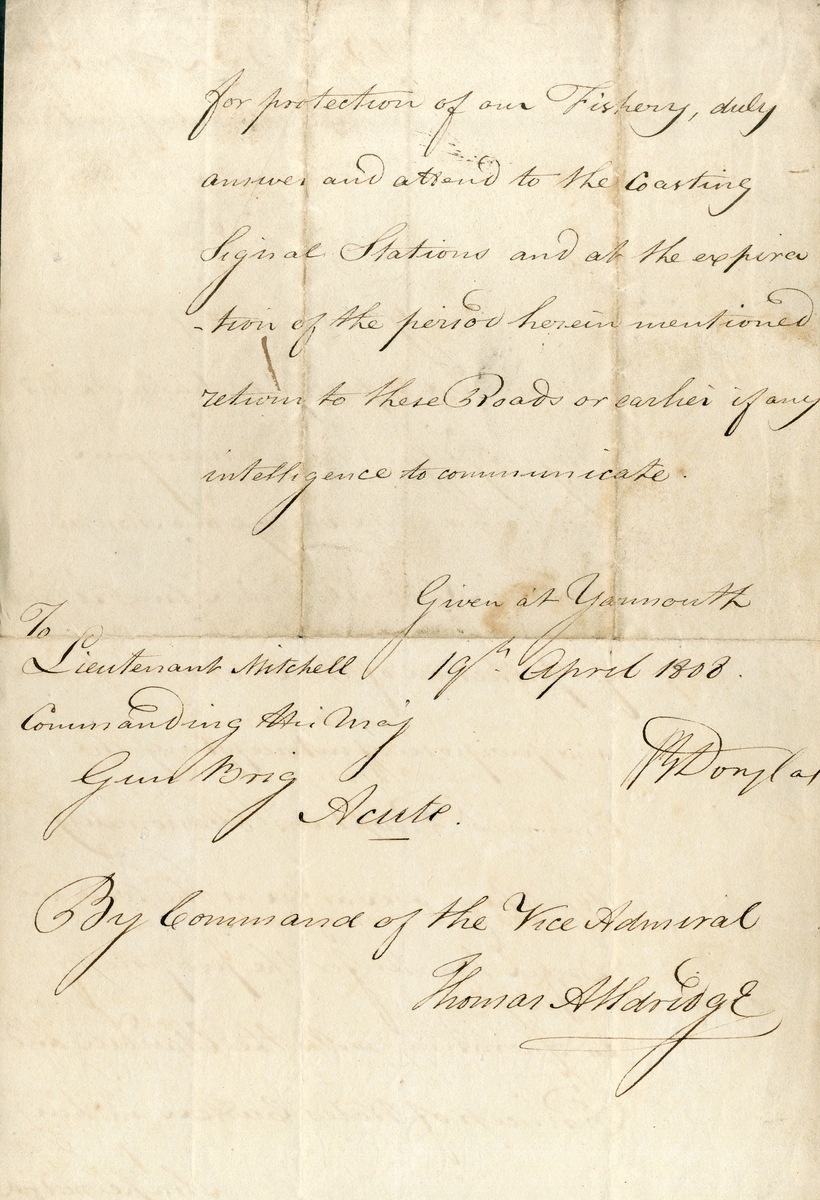 for protection of our Fishery, duly
answer and attend to the Coasting
Signal Stations and at the expira
-tion of the period herein mentioned
return to these Roads or earlier if any
intelligence to communicate.
Given at Yarmouth
To
Lieutenant Mitchell 19th April 1808.
Commanding His Maj
Gun Brig
Acute.
Douglas
By Command of the Vice Admiral
Thomas Alldridge